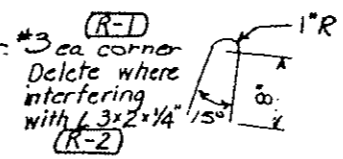 (R-1)
#3 ea corner
Delete where
interfering
with L 3x2x1/4"
(R-2)
1"R
15°
8"